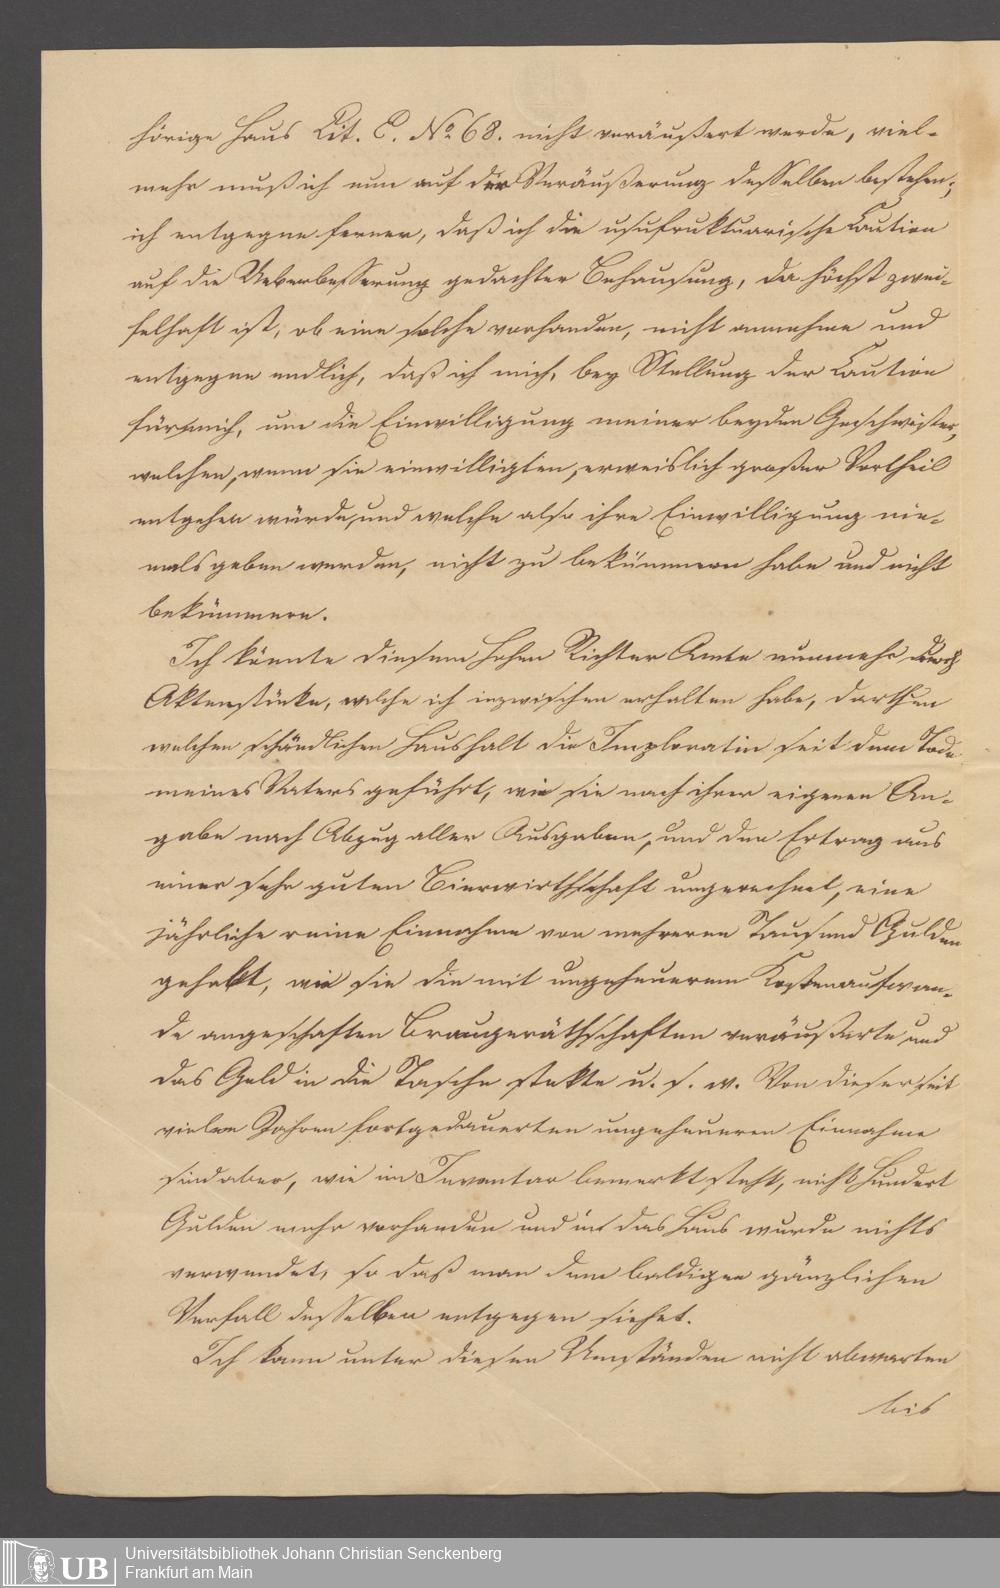 hörige Haus Lit. C. No 68. nicht veräußert werde, viel-
mehr muß ich nun auf der Veräußerung desselben bestehen;
ich entgegne ferner, daß ich die usufruktuarische Caution
auf die Ueberbesserung gedachter Behausung, da höchst zwei-
felhaft ist, ob eine solche vorhanden, nicht annehme und
entgegne endlich, daß ich mich, bey Stellung der Caution
für mich, um die Einwilligung meiner beyden Geschwister,
welchen, wenn sie einwilligten, erweislich großer Vortheil
entgehen würde, und welche also ihre Einwilligung nie-
mals geben werden, nicht zu bekümmern habe und nicht
bekümmere.
Ich könnte diesem Hohen Richter Amte nunmehr durch
Aktenstücke, welche ich inzwischen erhalten habe, darthun
welchen schändlichen Haushalt die Imploratin seit dem Tode
meines Vaters geführt, wie sie nach ihrer eigenen An-
gabe nach Abzug aller Ausgaben, und den Ertrag aus
einer sehr guten Bierwirthschaft ungerechnet, eine
jährliche reine Einnahme von mehreren Tausend Gulden
gehabt, wie sie die mit ungeheuerem Kostenaufwan-
de angeschaften Braugeräthschaften veräußerte und
das Geld in die Tasche stekte u. s. w. Von dieser seit
vielen Jahren fortgedauerten ungeheueren Einnahme
sind aber, wie im Inventar bemerkt steht, nicht Hundert
Gulden mehr vorhanden und in das Haus wurde nichts
verwendet, so daß man dem baldigen gänzlichen
Verfall desselben entgegen siehet.
Ich kann unter diesen Umständen nicht abwarten
bis
UB
Universitätsbibliothek Johann Christian Senckenberg
Frankfurt am Main